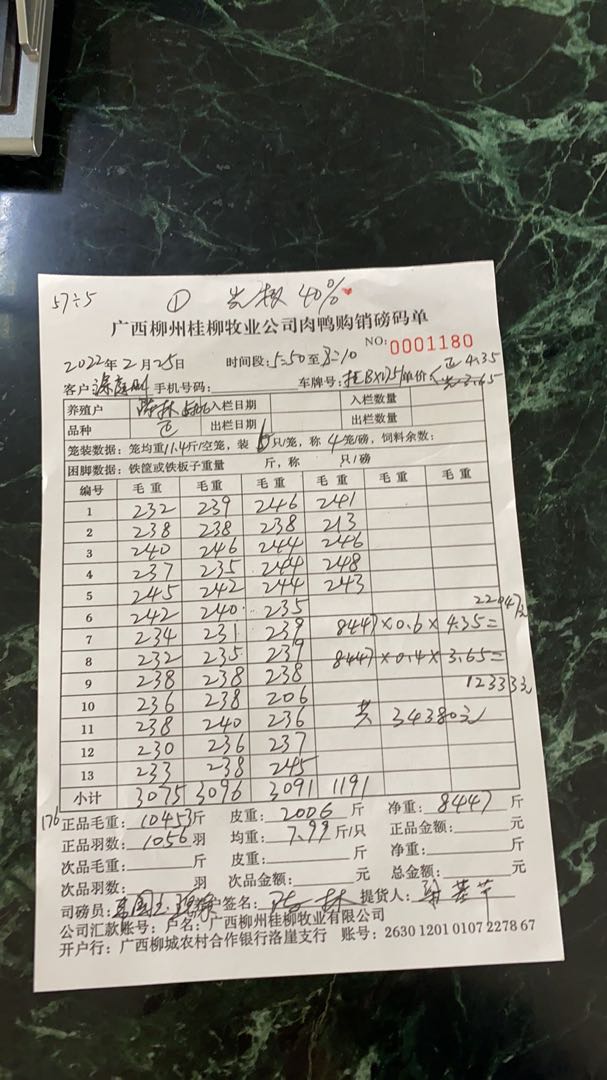 57÷5 ① 光板 40%
广西柳州桂柳牧业公司肉鸭购销磅码单
NO: 0001180
2022年2月25日 时间段: 5:50 至 3:10
客户 手机号码: 车牌号: 单价 4.35
3.65
养殖户 入栏日期 入栏数量
品种 出栏日期 出栏数量
笼装数据: 笼均重11.4斤/空笼, 装6只/笼, 称4笼/磅, 饲料余数:
困脚数据: 铁筐或铁板子重量 斤, 称 只/磅
编号 毛重 毛重 毛重 毛重 毛重 毛重
1 232 239 246 241
2 238 238 238 213
3 240 246 244 246
4 237 235 244 248
5 245 242 244 243
6 242 240 235 22047元
7 234 231 239 8447×0.6×4.35=
8 232 235 239 8447×0.4×3.65=
9 238 238 238 12333元
10 236 238 206
11 238 240 236 共 34380元
12 230 236 237
13 233 238 245
小计 3075 3096 3091 1191
176 正品毛重: 10453斤 皮重: 2006斤 净重: 8447斤
正品羽数: 1056羽 均重: 7.99斤/只 正品金额: 元
次品毛重: 斤 皮重: 斤 净重: 斤
次品羽数: 羽 次品金额: 元 总金额: 元
司磅员: 户签名: 提货人:
公司汇款账号: 户名: 广西柳州桂柳牧业有限公司
开户行: 广西柳城农村合作银行洛崖支行 账号: 2630 1201 0107 2278 67